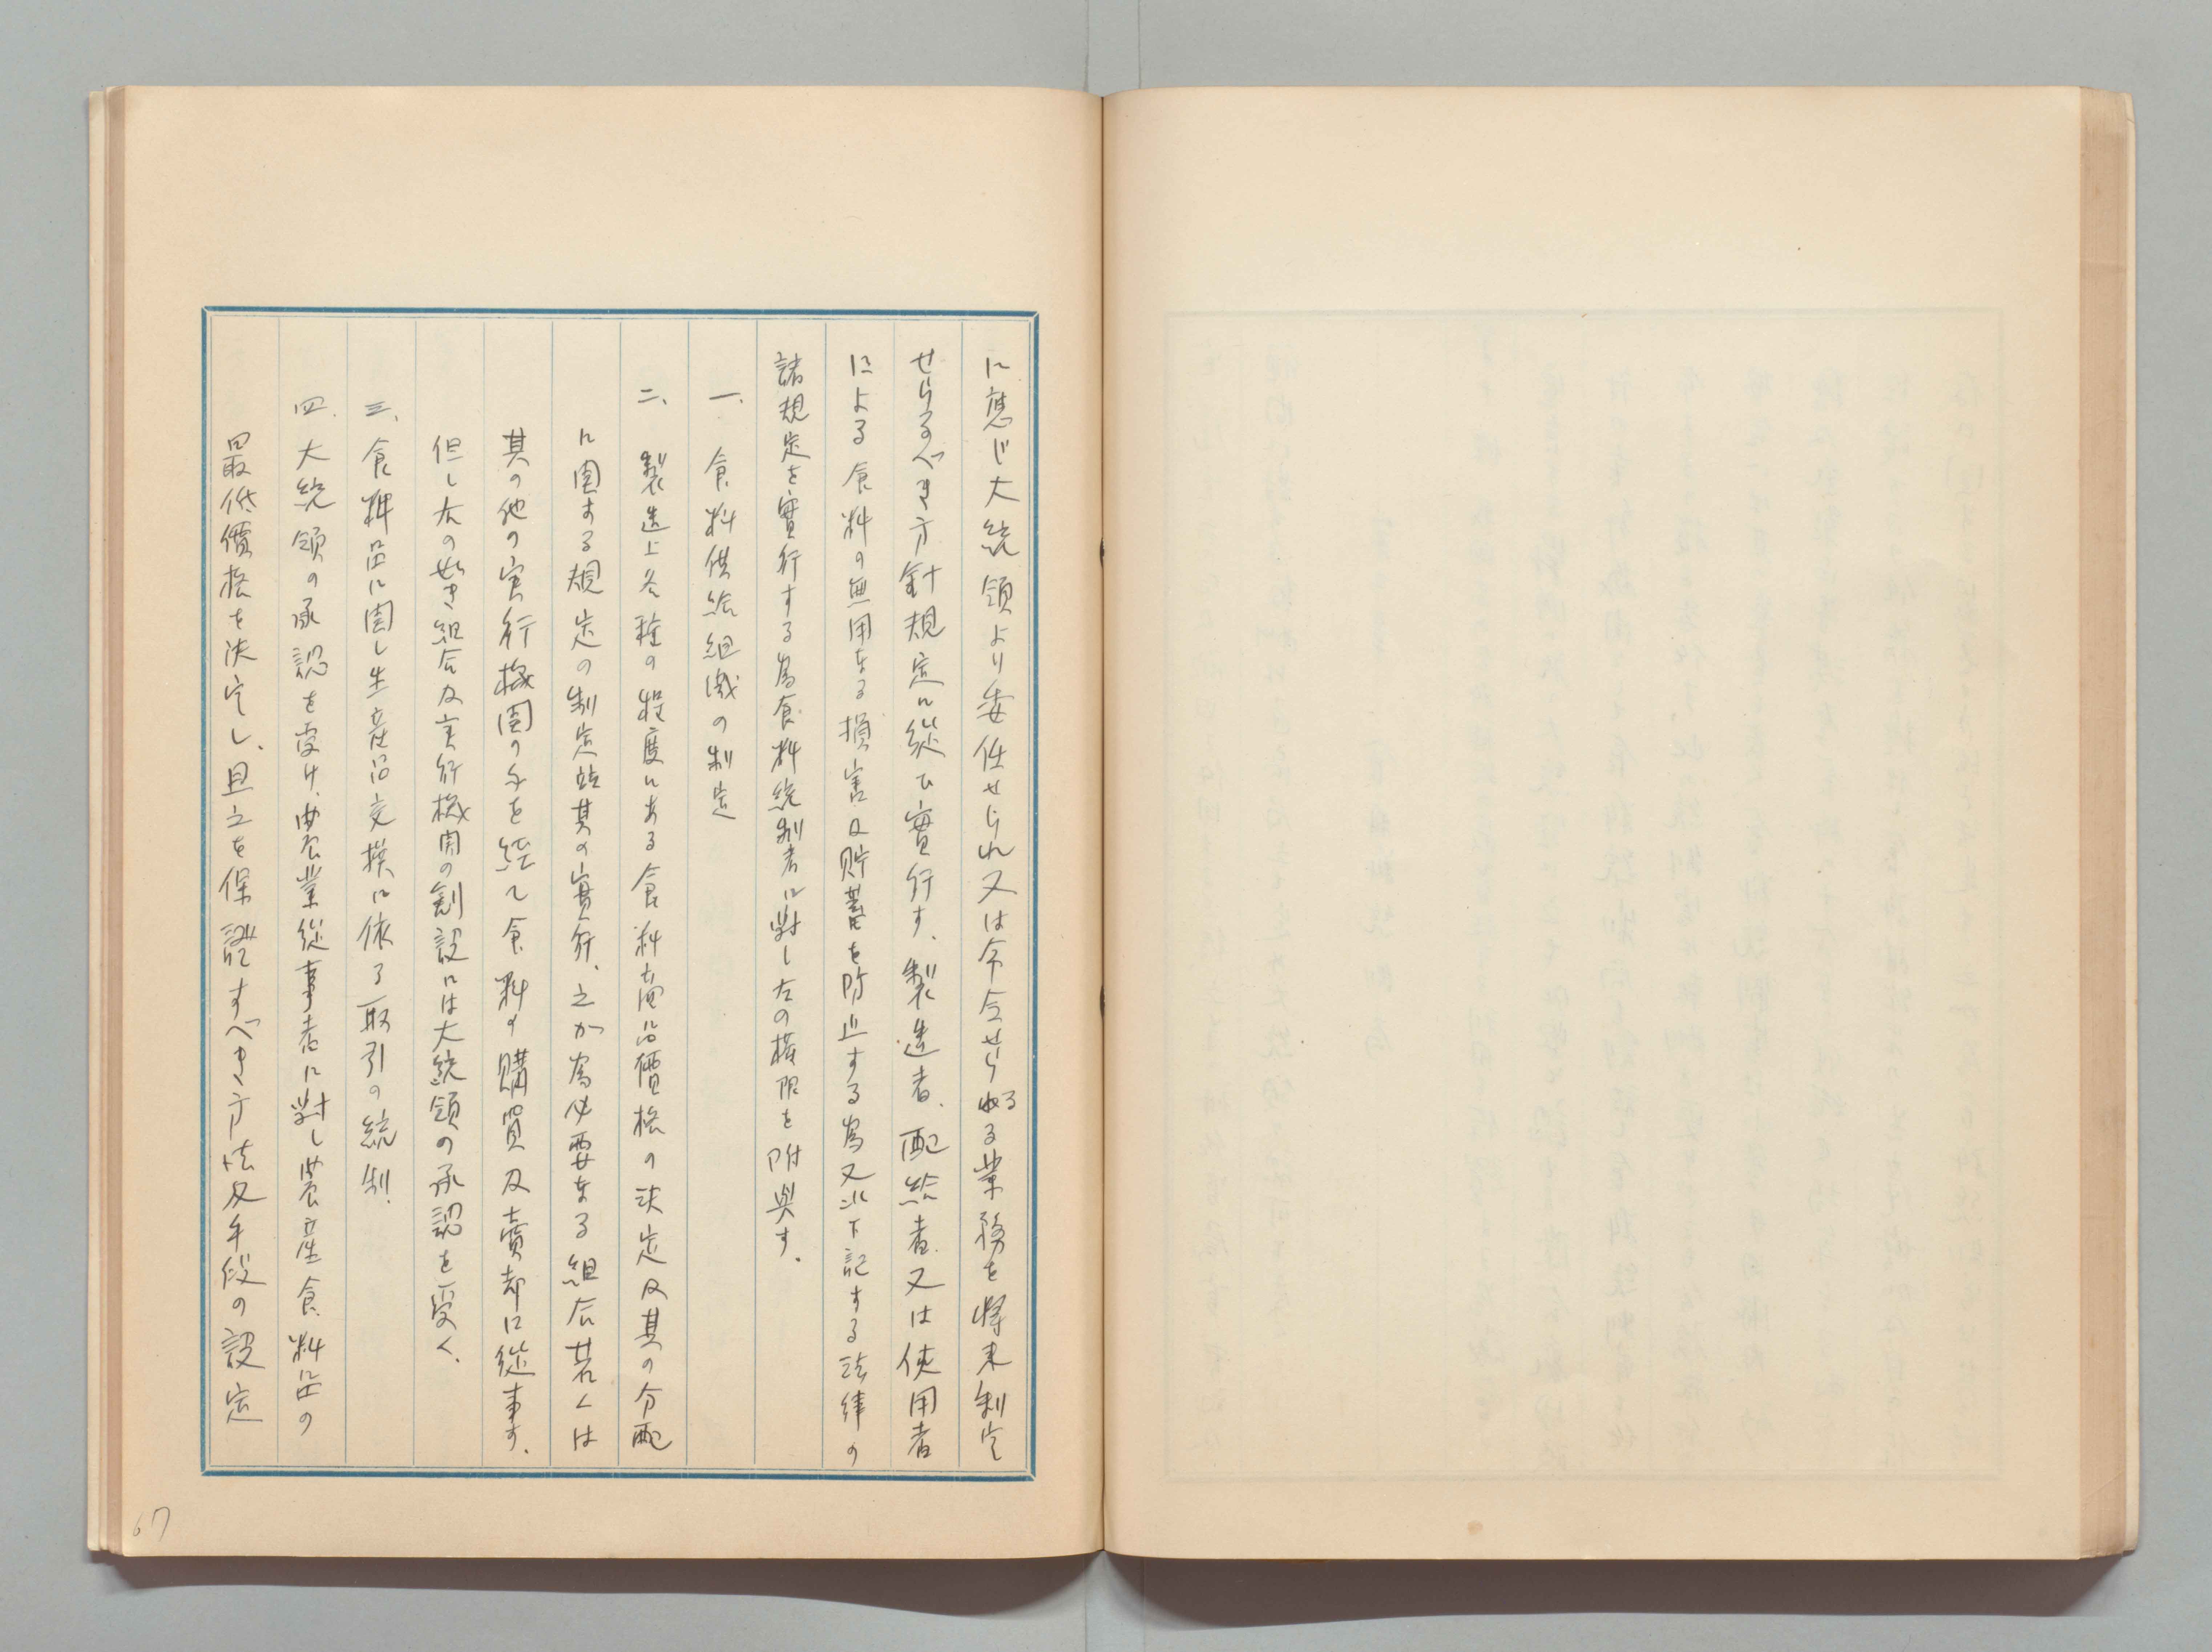 に應じ大統領より委任せられ又は命令せらるる業務を將来制定
せらるべき方針規定に從ひ實行す、製造者、配給者、又は使用者
による食料の無用なる損害及貯蓄を防止する為又は下記する法律の
諸規定を實行する為食料統制者に對し左の權限を附與す。
一、食料供給組織の制定
二、製造上各種の程度にある食料商品價格の決定及其の分配
に関する規定の制定並其の實行、之か為必要なる組合若くは
其の他の実行機関の手を経て食料の購買及賣却に從事す。
但し左の如き組合及実行機関の創設には大統領の承認を受く。
三、食料品に関し生産品交換に依る取引の統制。
四、大統領の承認を受け、農業従事者に對し農産食料品の
最低價格を決定し、且之を保證すべき方法及手段の設定
67